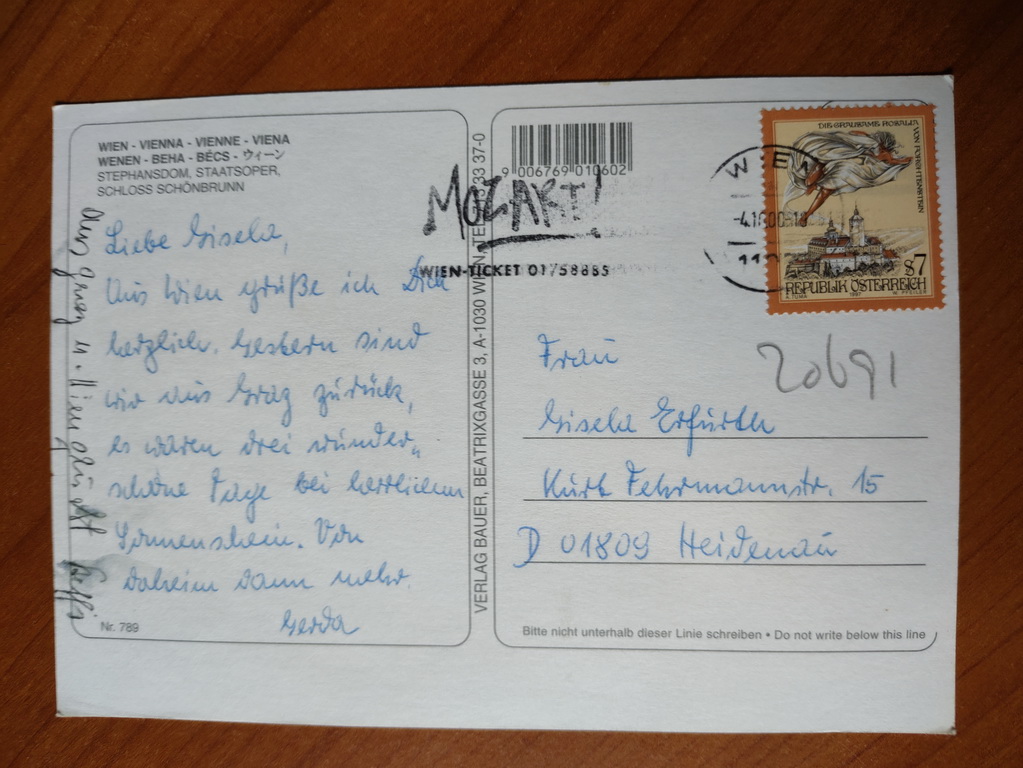 WIEN - VIENNA - VIENNE - VIENA
WENEN - BEHA - BÉCS - ウィーン
STEPHANSDOM, STAATSOPER,
SCHLOSS SCHÖNBRUNN
Liebe Gisela,
Aus Wien grüße ich Dich
herzlich. Gestern sind
wir aus Graz zurück,
es waren drei wunder„
schöne Tage bei herrlichem
Sonnenschein. Von
daheim dann mehr.
Gerda
Nr. 789
Aus Graz u. Wien grüßt
VERLAG BAUER, BEATRIXGASSE 3, A-1030 WIEN, 37-0
9 006769 010602
MOZART!
WIEN-TICKET 01/58885
WIEN
DIE GRAUSAME ROSALIA
VON FORCHTENSTEIN
S7
REPUBLIK ÖSTERREICH
1997
20691
Frau
Gisela Erfurth
Kurt Fehrmannstr. 15
D 01809 Heidenau
Bitte nicht unterhalb dieser Linie schreiben • Do not write below this line